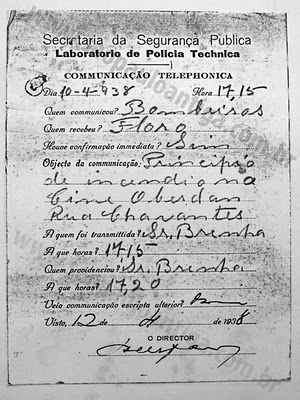 Secretaria da Segurança Publica
Laboratorio de Policia Technica
COMMUNICAÇÃO TELEPHONICA
Dia 10-4-938 Hora 17,15
Quem communicou? Bombeiros
Quem recebeu? Flora
Houve confirmação immediata? Sim
Objecto da communicação: Principio
de incendio na
Cine Oberdan
Rua Chavantes
A quem foi transmittida? Sr. Brenha
A que horas? 17,15
Quem providenciou? Sr. Brenha
A que horas? 17,20
Veio communicação escripta ulterior?
Visto, 12 de 4 de 1938
O DIRECTOR